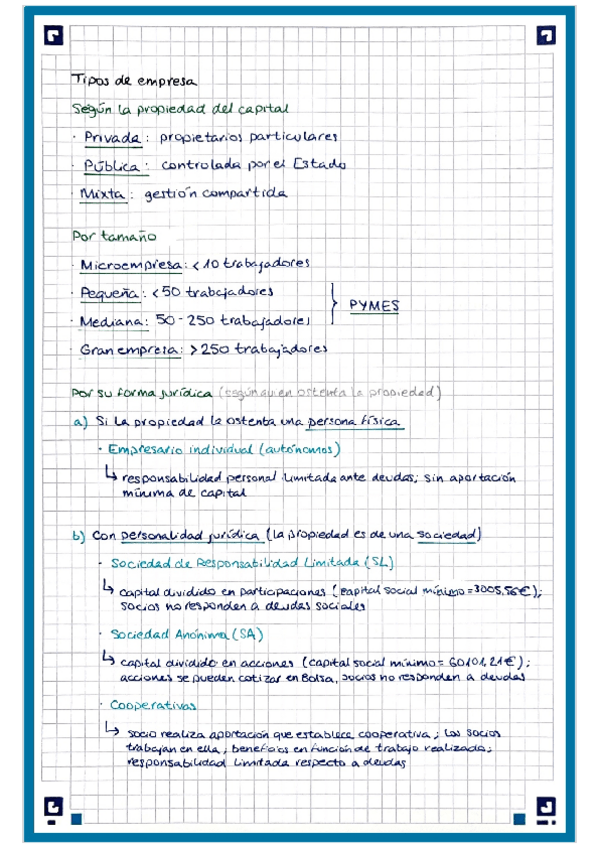 Tipos de empresa
Según la propiedad del capital
· Privada: propietarios particulares
· Pública: controlada por el Estado
· Mixta: gestión compartida
Por tamaño
· Microempresa: < 10 trabajadores
· Pequeña: < 50 trabajadores
· Mediana: 50 - 250 trabajadores
PYMES
· Gran empresa: > 250 trabajadores
Por su forma jurídica (según quien ostenta la propiedad)
a) Si la propiedad la ostenta una persona física
· Empresario individual (autónomos)
↳ responsabilidad personal ilimitada ante deudas; sin aportación
mínima de capital
b) Con personalidad jurídica (la propiedad es de una sociedad)
· Sociedad de Responsabilidad Limitada (SL)
↳ capital dividido en participaciones (capital social mínimo = 3005,56€);
socios no responden a deudas sociales
· Sociedad Anónima (SA)
↳ capital dividido en acciones (capital social mínimo = 60101,21€);
acciones se pueden cotizar en Bolsa, socios no responden a deudas
· Cooperativas
↳ socio realiza aportación que establece cooperativa; los socios
trabajan en ella; beneficios en función de trabajo realizado;
responsabilidad limitada respecto a deudas